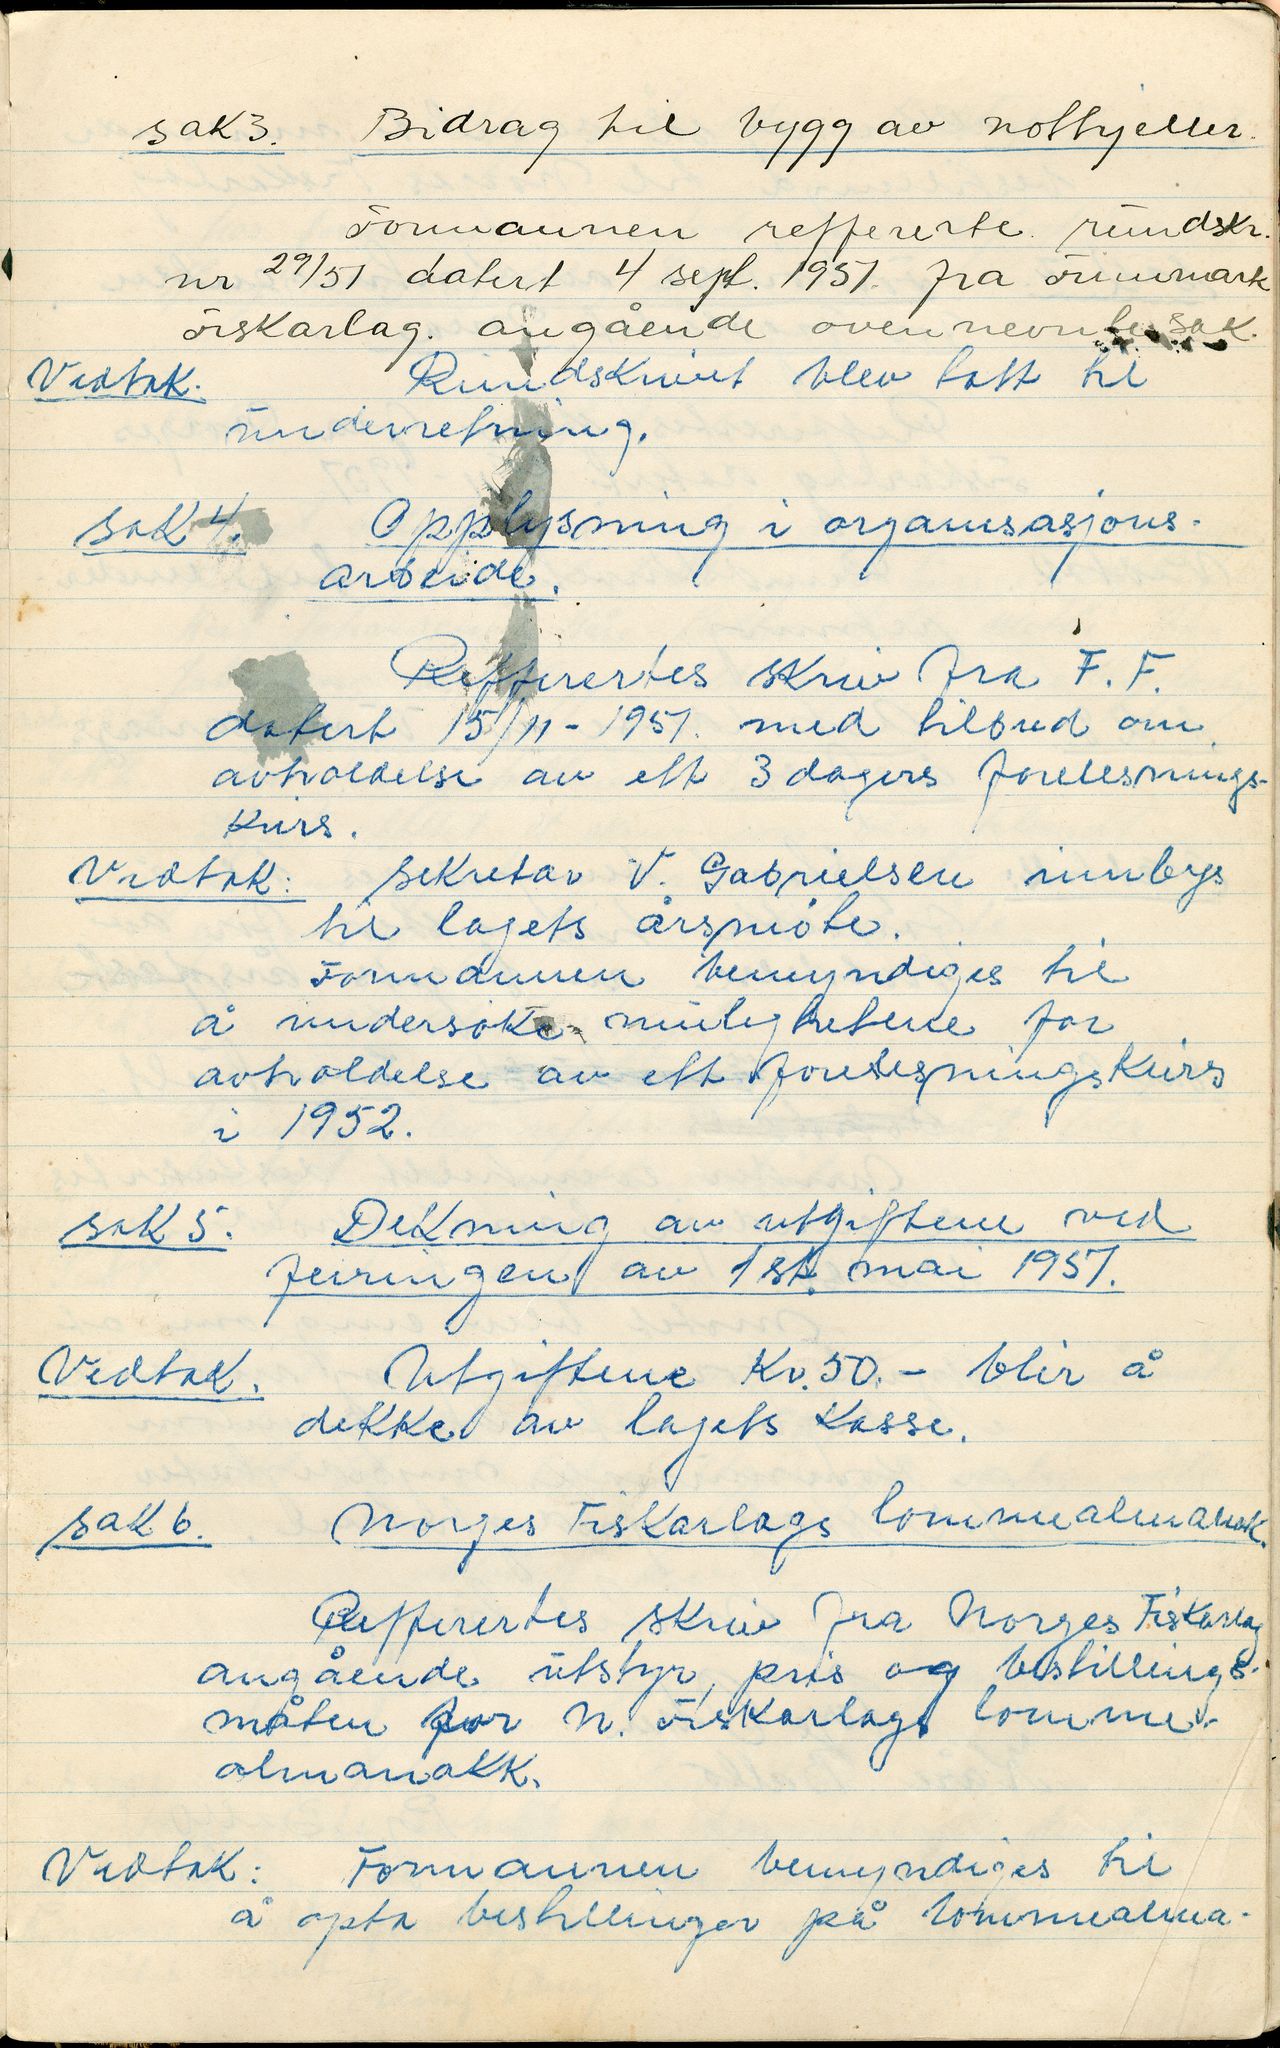 sak 3. Bidrag til bygg av nothjeller.
Formannen reffererte rundskr.
nr 29/51 datert 4 sept. 1951. fra Finnmark
Fiskarlag. angående ovennevnte sak.
Vedtak. Rundskrivet blev tatt til
underretning.
sak 4. Opplysning i organisasjons-
arbeide.
Refferertes skriv fra F. F.
datert 15/11-1951. med tilbud om
avholdelse av ett 3 dagers forelesnings-
kurs.
Vedtak: sekretær V. Gabrielsen innbys
til lagets årsmöte.
Formannen bemyndiges til
å undersöke mulighetene for
avholdelse av ett forelesningskurs
i 1952.
sak 5. Dekning av utgiftene ved
feiringen av 1st. mai 1951.
Vedtak. Utgiftene Kr. 50.- blir å
dekke av lagets kasse.
sak 6. Norges Fiskarlags lommealmanak.
Refferertes skriv fra Norges Fiskarlag
angående utstyr, pris og bestillings-
måten for N. Fiskarlags lomme-
almanakk.
Vedtak: Formannen bemyndiges til
å opta bestillinger på lommealma-